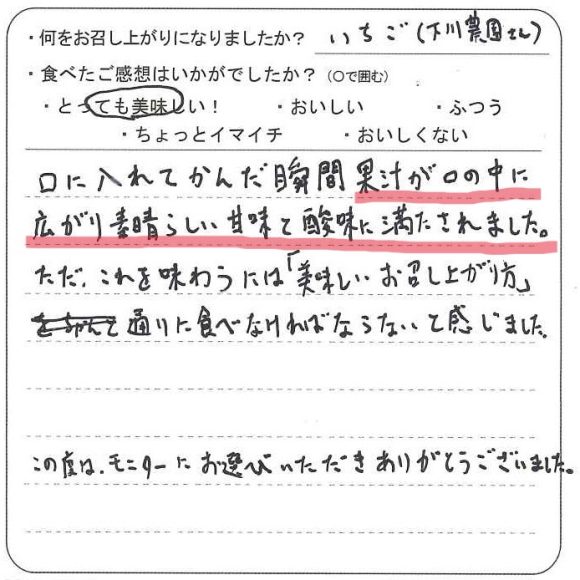 ・何をお召し上がりになりましたか？ いちご(下川農園さん)
・食べたご感想はいかがでしたか？（○で囲む）
・とっても美味しい！ ・おいしい ・ふつう
・ちょっとイマイチ ・おいしくない
口に入れてかんだ瞬間果汁が口の中に
広がり素晴らしい甘味と酸味に満たされました。
ただ、これを味わうには「美味しいお召し上がり方」
通りに食べなければならないと感じました。
この度は、モニターにお選びいただきありがとうございました。